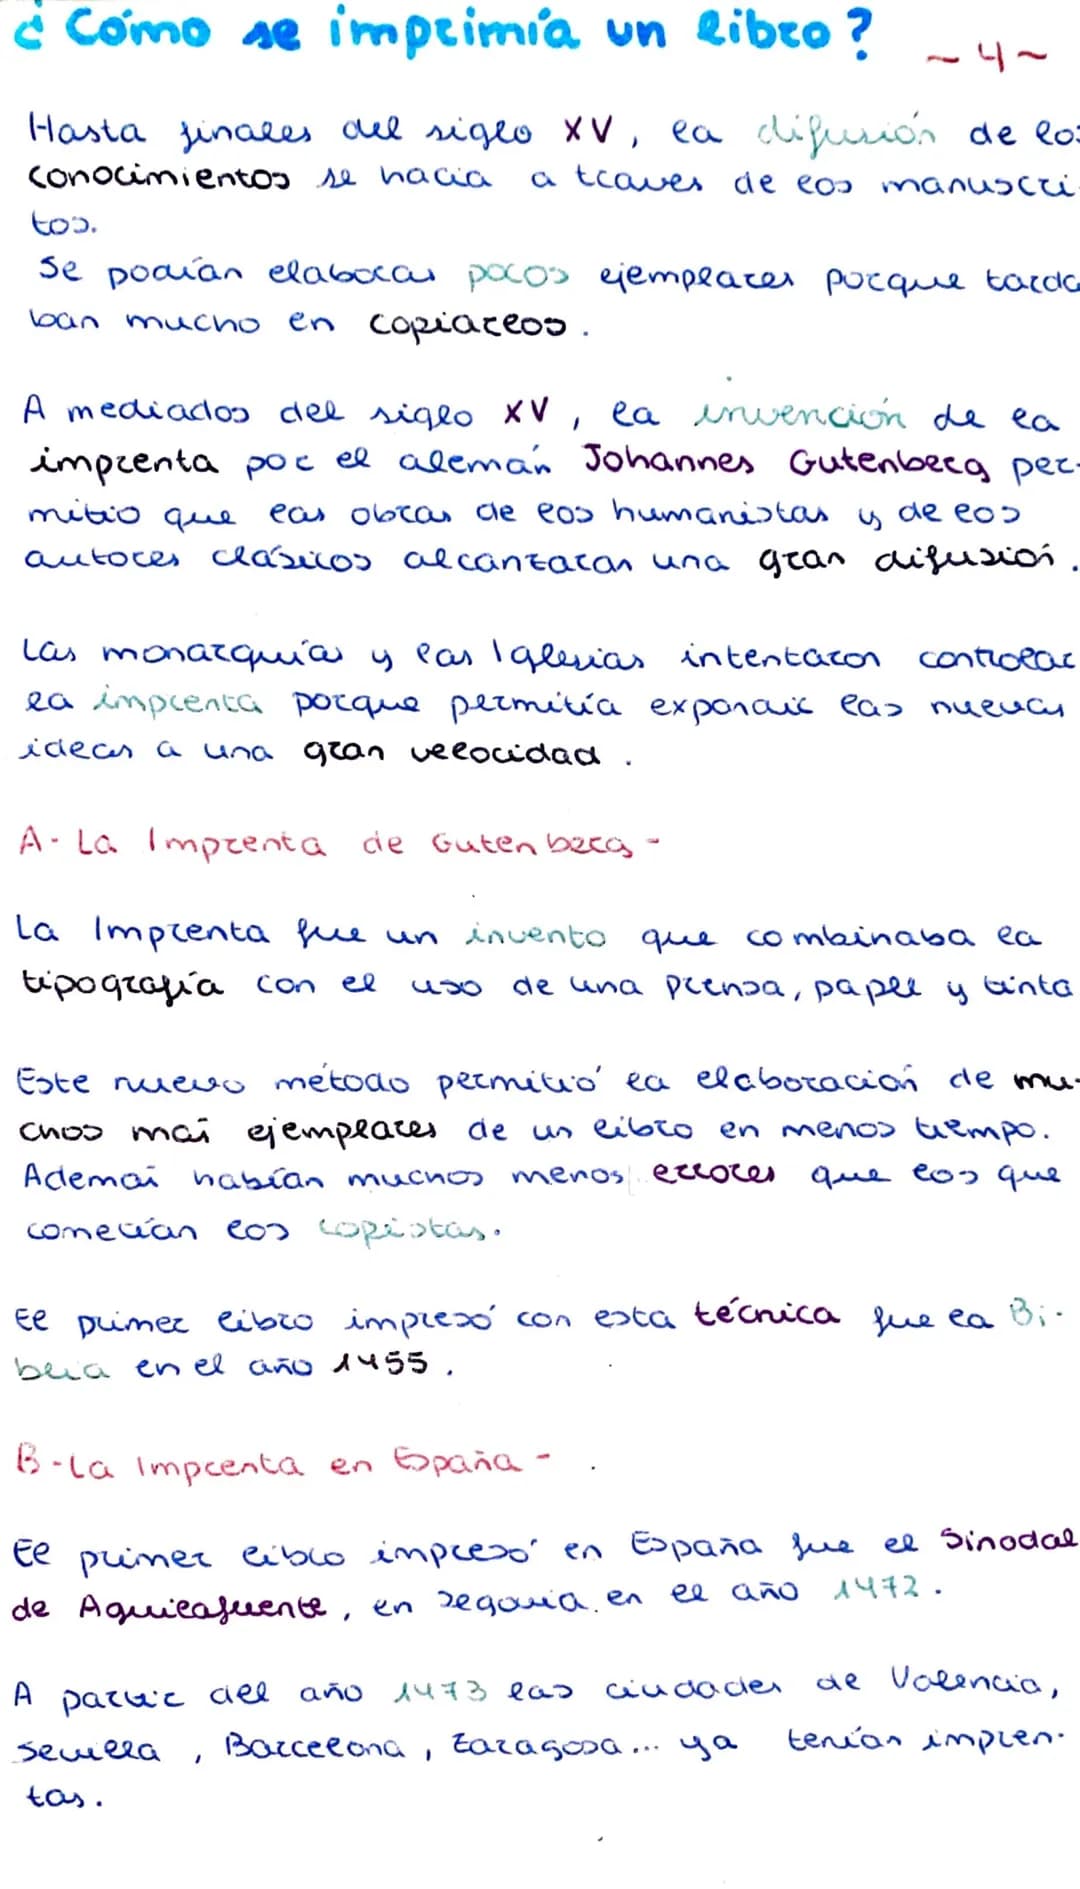 ¿Cómo se imprimía un libro?
~4~
Hasta finales del siglo XV, la difusión de los
conocimientos se hacia a traves de los manuscri-
tos.
Se podían elaborar pocos ejemplares porque tarda
ban mucho en copiarlos.
A mediados del siglo XV, la invención de la
imprenta por el alemán Johannes Gutenberg per-
mitio que las obras de los humanistas y de los
autores clásicos alcanzaran una gran difusión.
Las monarquías y las Iglesias intentaron controlar
la imprenta porque permitía expandir las nuevas
ideas a una gran velocidad.
A- La Imprenta de Gutenberg -
La Imprenta fue un invento que combinaba la
tipografía con el uso de una prensa, papel y tinta
Este nuevo método permitió la elaboración de mu-
chos más ejemplares de un libro en menos tiempo.
Además habían muchos menos errores que los que
cometían los copistas.
El primer libro impresó con esta técnica fue la Bi-
blia en el año 1455.
B-La Imprenta en España -
El primer libro impresó en España fue el Sinodal
de Aguilafuente, en Segovia en el año 1472.
A partir del año 1473 las ciudades de Valencia,
Sevilla, Barcelona, Zaragosa... ya tenían impren-
tas.